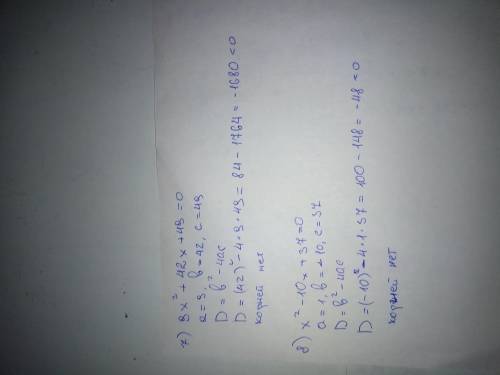 7) 9x² + 42x + 49 = 0
a = 9, b = 42, c = 49
D = b² - 4ac
D = (42)² - 4 · 9 · 49 = 84 - 1764 = -1680 < 0
корней нет
8) x² - 10x + 37 = 0
a = 1, b = -10, c = 37
D = b² - 4ac
D = (-10)² - 4 · 1 · 37 = 100 - 148 = -48 < 0
корней нет